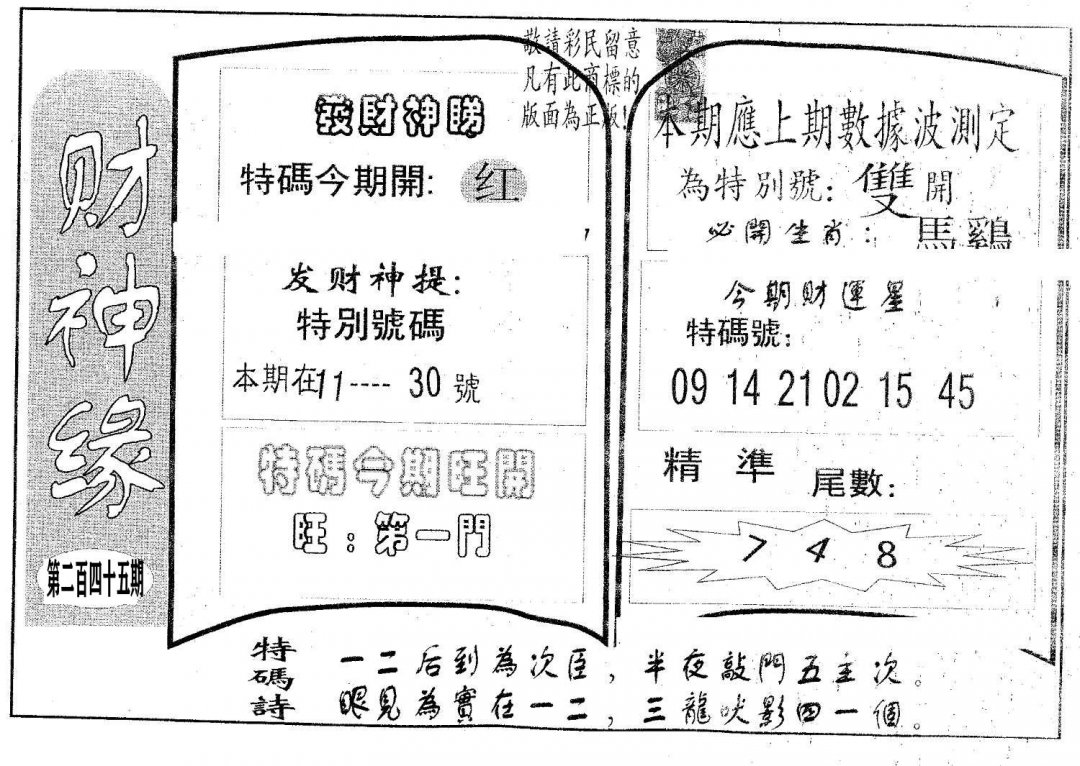 财神缘
第二百四十五期
敬請彩民留意
凡有此商標的
版面為正版!
發財神睇
特碼今期開: 红
发财神提:
特別號碼
本期在11----30號
特碼今期旺開
旺:第一門
本期應上期數據波測定
為特別號:雙開
必開生肖:馬鷄
今期財運星
特碼號:
09 14 21 02 15 45
精準 尾數:
7 4 8
特碼詩
一二后到為次臣,半夜敲門五主次。
眼見為實在一二,三龍吠影四一個。